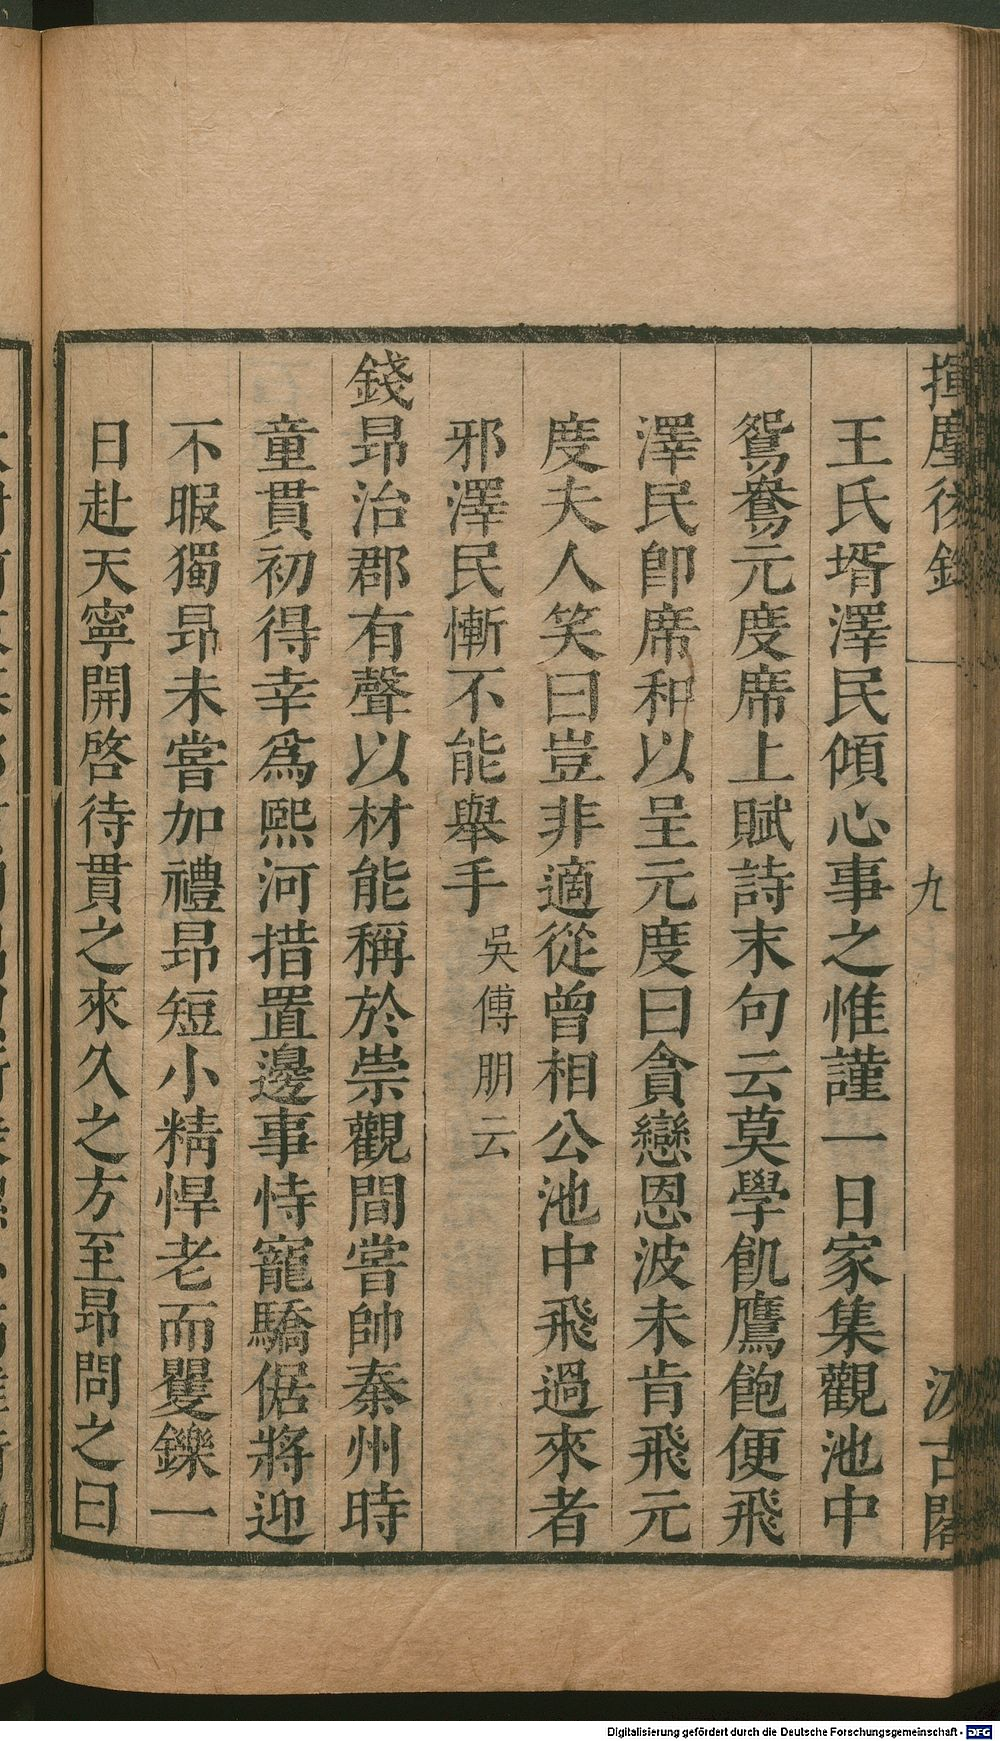 揮麈後錄 九 汲古閣
王氏壻澤民傾心事之惟謹一日家集觀池中
鴛鴦元度席上賦詩末句云莫學飢鷹飽便飛
澤民卽席和以呈元度曰貪戀恩波未肯飛元
度夫人笑曰豈非適從曾相公池中飛過來者
邪澤民慚不能舉手吳傅朋云
錢昻治郡有聲以材能稱於崇觀間嘗帥秦州時
童貫初得幸爲熙河措置邊事恃寵驕倨將迎
不暇獨昻未嘗加禮昻短小精悍老而矍鑠一
日赴天寧開啓待貫之來久之方至昻問之曰
Digitalisierung gefördert durch die Deutsche Forschungsgemeinschaft - DFG